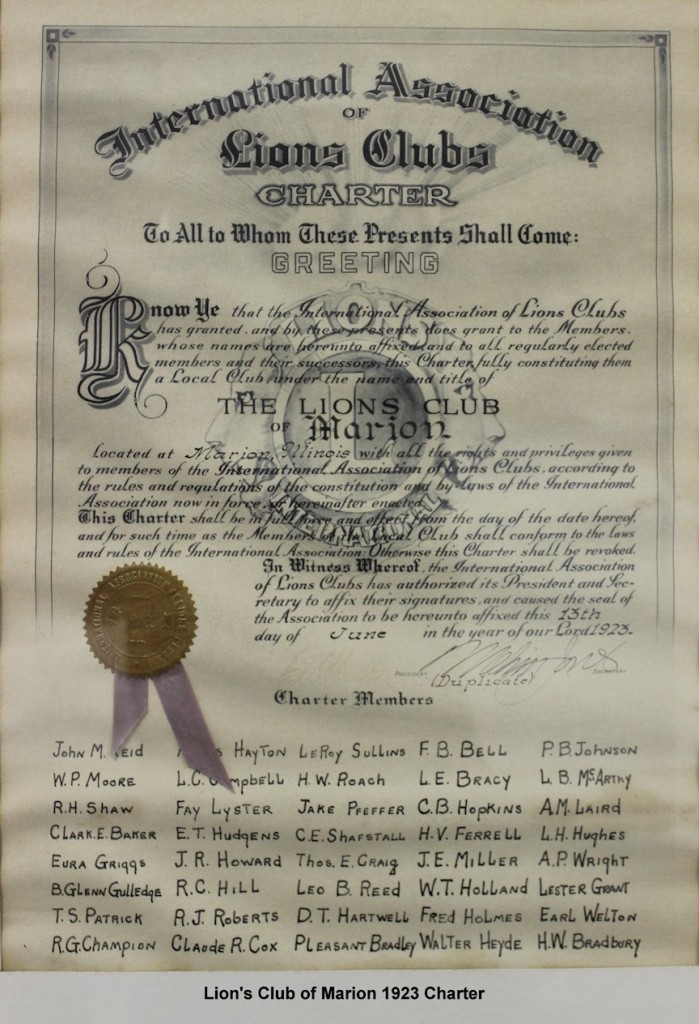 International Association
OF
Lions Clubs
CHARTER
To All to Whom These Presents Shall Come:
GREETING
Know Ye that the International Association of Lions Clubs
has granted, and by these presents does grant to the Members,
whose names are hereunto affixed and to all regularly elected
members and their successors, this Charter, fully constituting them
a Local Club under the name and title of
THE LIONS CLUB
OF Marion
Located at Marion, Illinois with all the rights and privileges given
to members of the International Association of Lions Clubs, according to
the rules and regulations of the constitution and by-laws of the International
Association now in force or hereinafter enacted.
This Charter shall be in full force and effect from the day of the date hereof,
and for such time as the Members of the Local Club shall conform to the laws
and rules of the International Association. Otherwise this Charter shall be revoked.
In Witness Whereof, the International Association
of Lions Clubs has authorized its President and Sec-
retary to affix their signatures, and caused the seal of
the Association to be hereunto affixed this 13th
day of June in the year of our Lord 1923.
PRESIDENT SECRETARY
(Duplicate)
Charter Members
John M. HAYTON LeRoy Sullins F. B. BELL P.B. Johnson
W.P. Moore L.C. H.W. Roach L.E. Bracy L.B. McArthy
R.H. Shaw Fay Lyster Jake Pfeffer C.B. Hopkins A.M. Laird
Clark.E. Baker E.T. Hudgens C.E. Shafstall H.V. Ferrell L.H. Hughes
Eura Griggs J.R. Howard Thos. E. Craig J.E. Miller A.P. Wright
B.Glenn Gulledge R.C. Hill Leo B. Reed W.T. Holland Lester Grant
T.S. Patrick R.J. Roberts D.T. Hartwell Fred Holmes Earl Welton
R.G. Champion Claude R. Cox Pleasant Bradley Walter Heyde H.W. Bradbury
Lion's Club of Marion 1923 Charter